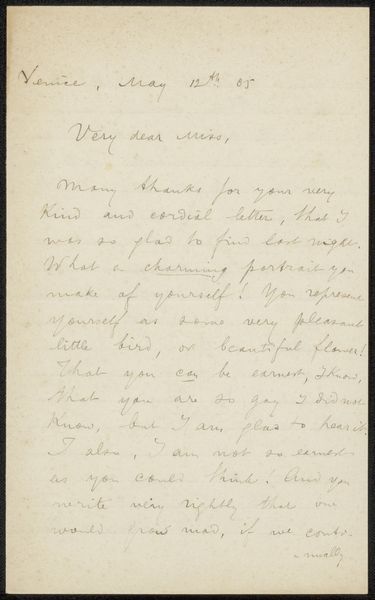 Venice, May 12th 85
Very dear Miss,
Many thanks for your very
kind and cordial letter, that I
was so glad to find last night.
What a charming portrait you
make of yourself! You represent
yourself as some very pleasant
little bird, or beautiful flower!
That you can be earnest, I know,
that you are so gay I did not
know, but I am glad to hear it.
I also, I am not so earnest
as you could think! And you
write very rightly that one
would grow mad, if we conti-
nually